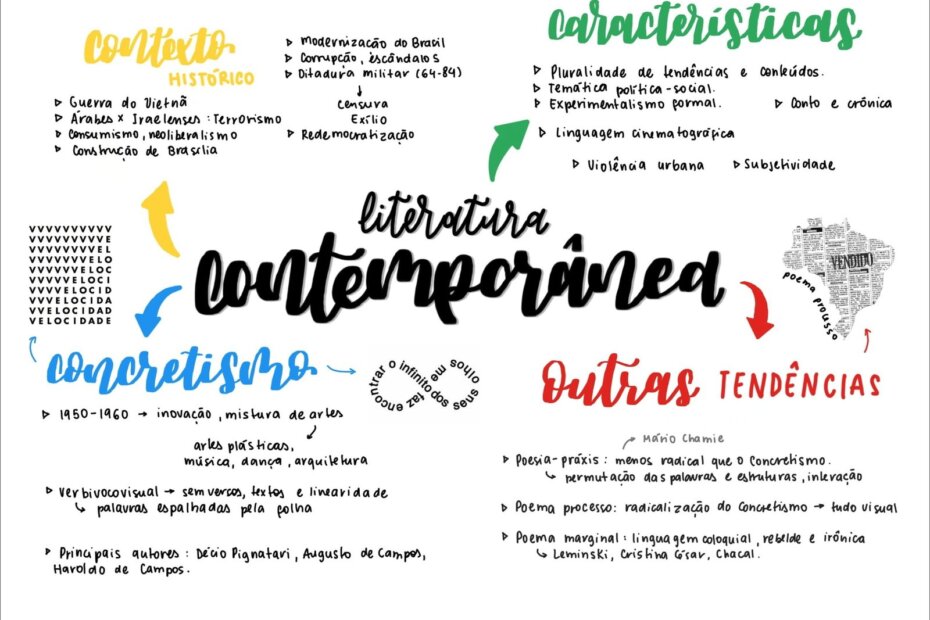 Contexto
HISTÓRICO
▹ Guerra do Vietnã
▹ Árabes x Iraelenses : Terrorismo
▹ Consumismo, neoliberalismo
▹ Construção de Brasília
▹ Modernização do Brasil
▹ Corrupção, escândalos
▹ Ditadura militar (64-84)
↓
censura
Exílio
▹ Redemocratização
Características
▹ Pluralidade de tendências e conteúdos.
▹ Temática político-social.
▹ Experimentalismo formal.
▹ Conto e crônica
▹ Linguagem cinematográfica
▹ Violência urbana
▹ Subjetividade
literatura
contemporânea
VVVVVVVVVV
VVVVVVVVVE
VVVVVVVVEL
VVVVVVVELO
VVVVVVELOC
VVVVVELOCI
VVVVELOCID
VVVELOCIDA
VVELOCIDAD
VELOCIDADE
VENDIDO
poema processo
concretismo
faz encontrar o infinito dos seus olhos me
▹ 1950-1960 → inovação, mistura de artes
artes plásticas,
música, dança, arquitetura
▹ Verbivocovisual → sem versos, textos e linearidade
↳ palavras espalhadas pela folha
▹ Principais autores : Décio Pignatari, Augusto de Campos,
Haroldo de Campos.
Outras TENDÊNCIAS
Mário Chamie
▹ Poesia-práxis : menos radical que o Concretismo.
↳ permutação das palavras e estruturas, interação
▹ Poema processo: radicalização do Concretismo → tudo visual
▹ Poema marginal : linguagem coloquial, rebelde e irônica
↳ Leminski, Cristina César, Chacal.